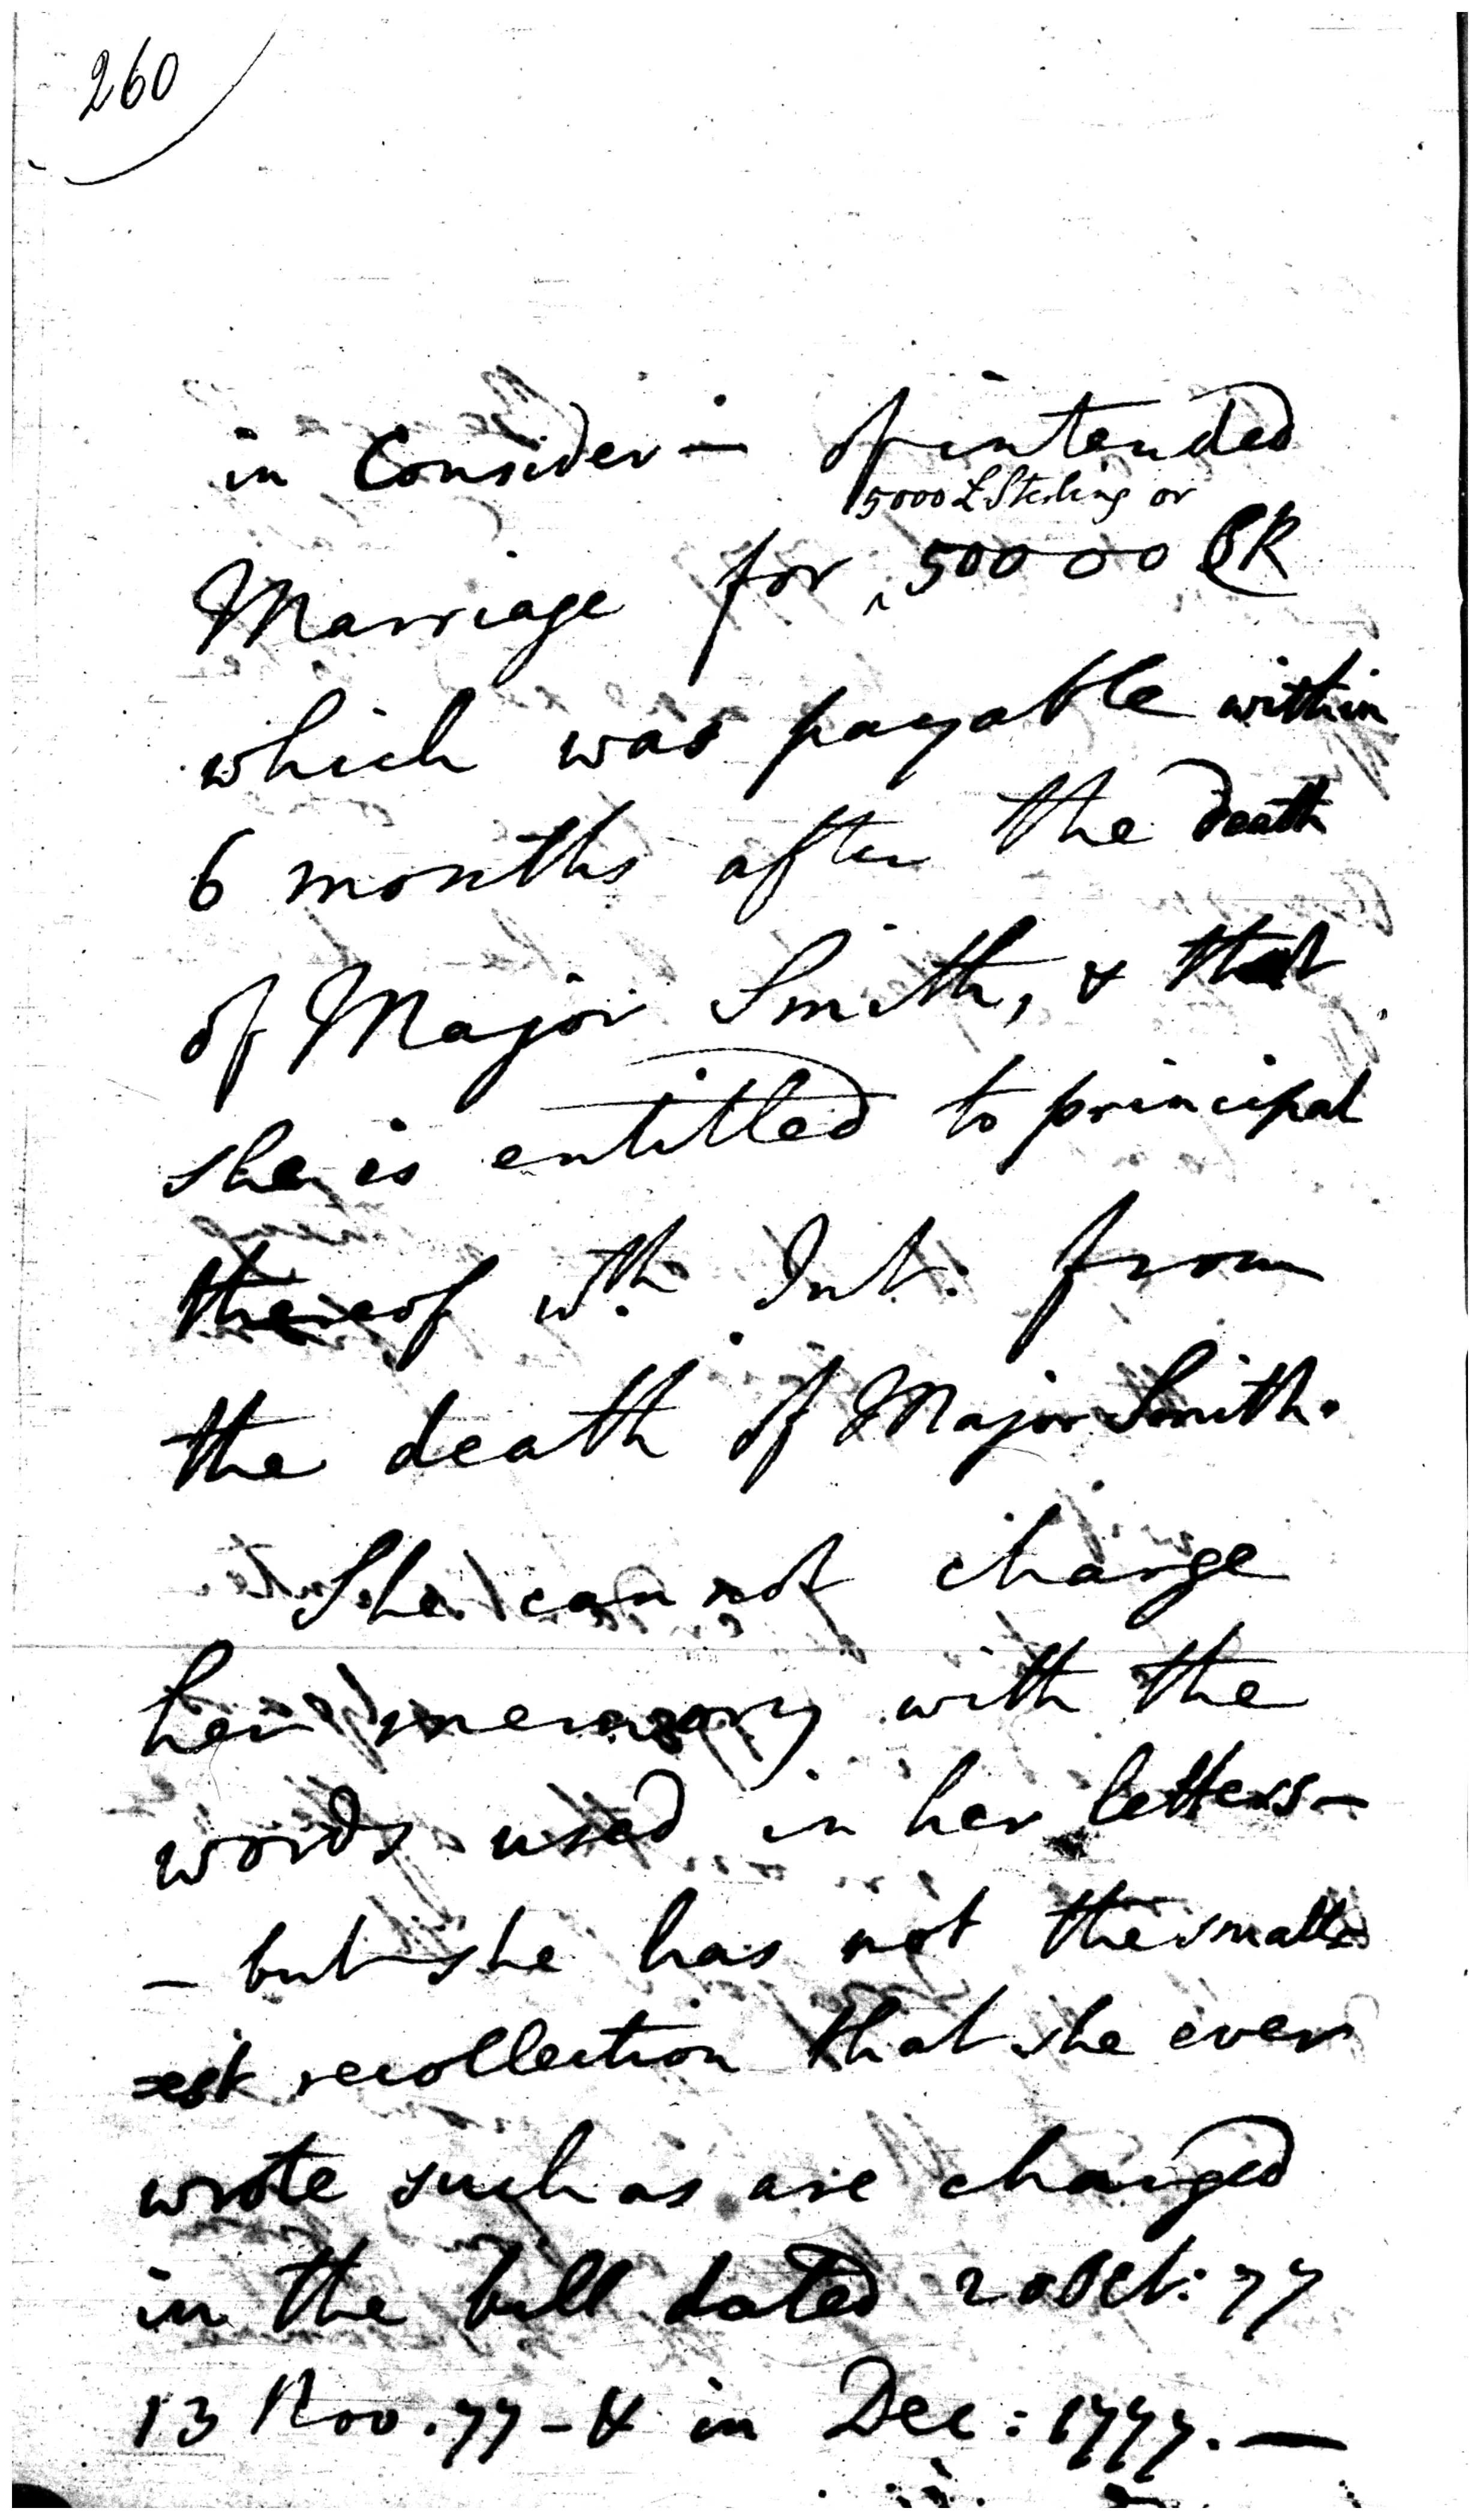 260
in Consider— of intended
5000 £ Sterling or
Marriage for ^ 50000 CR
which was payable within
6 months after the death
of Major Smith, & that
she is entitled to principal
thereof wth. Int. from
the death of Major Smith.
She can not charge
her memory with the
words used in her letters—
— but she has not the small
=est recollection that she ever
wrote such as are charged
in the bill dated 20 Oct: 77
13 Nov. 77 - & in Dec: 1777. —